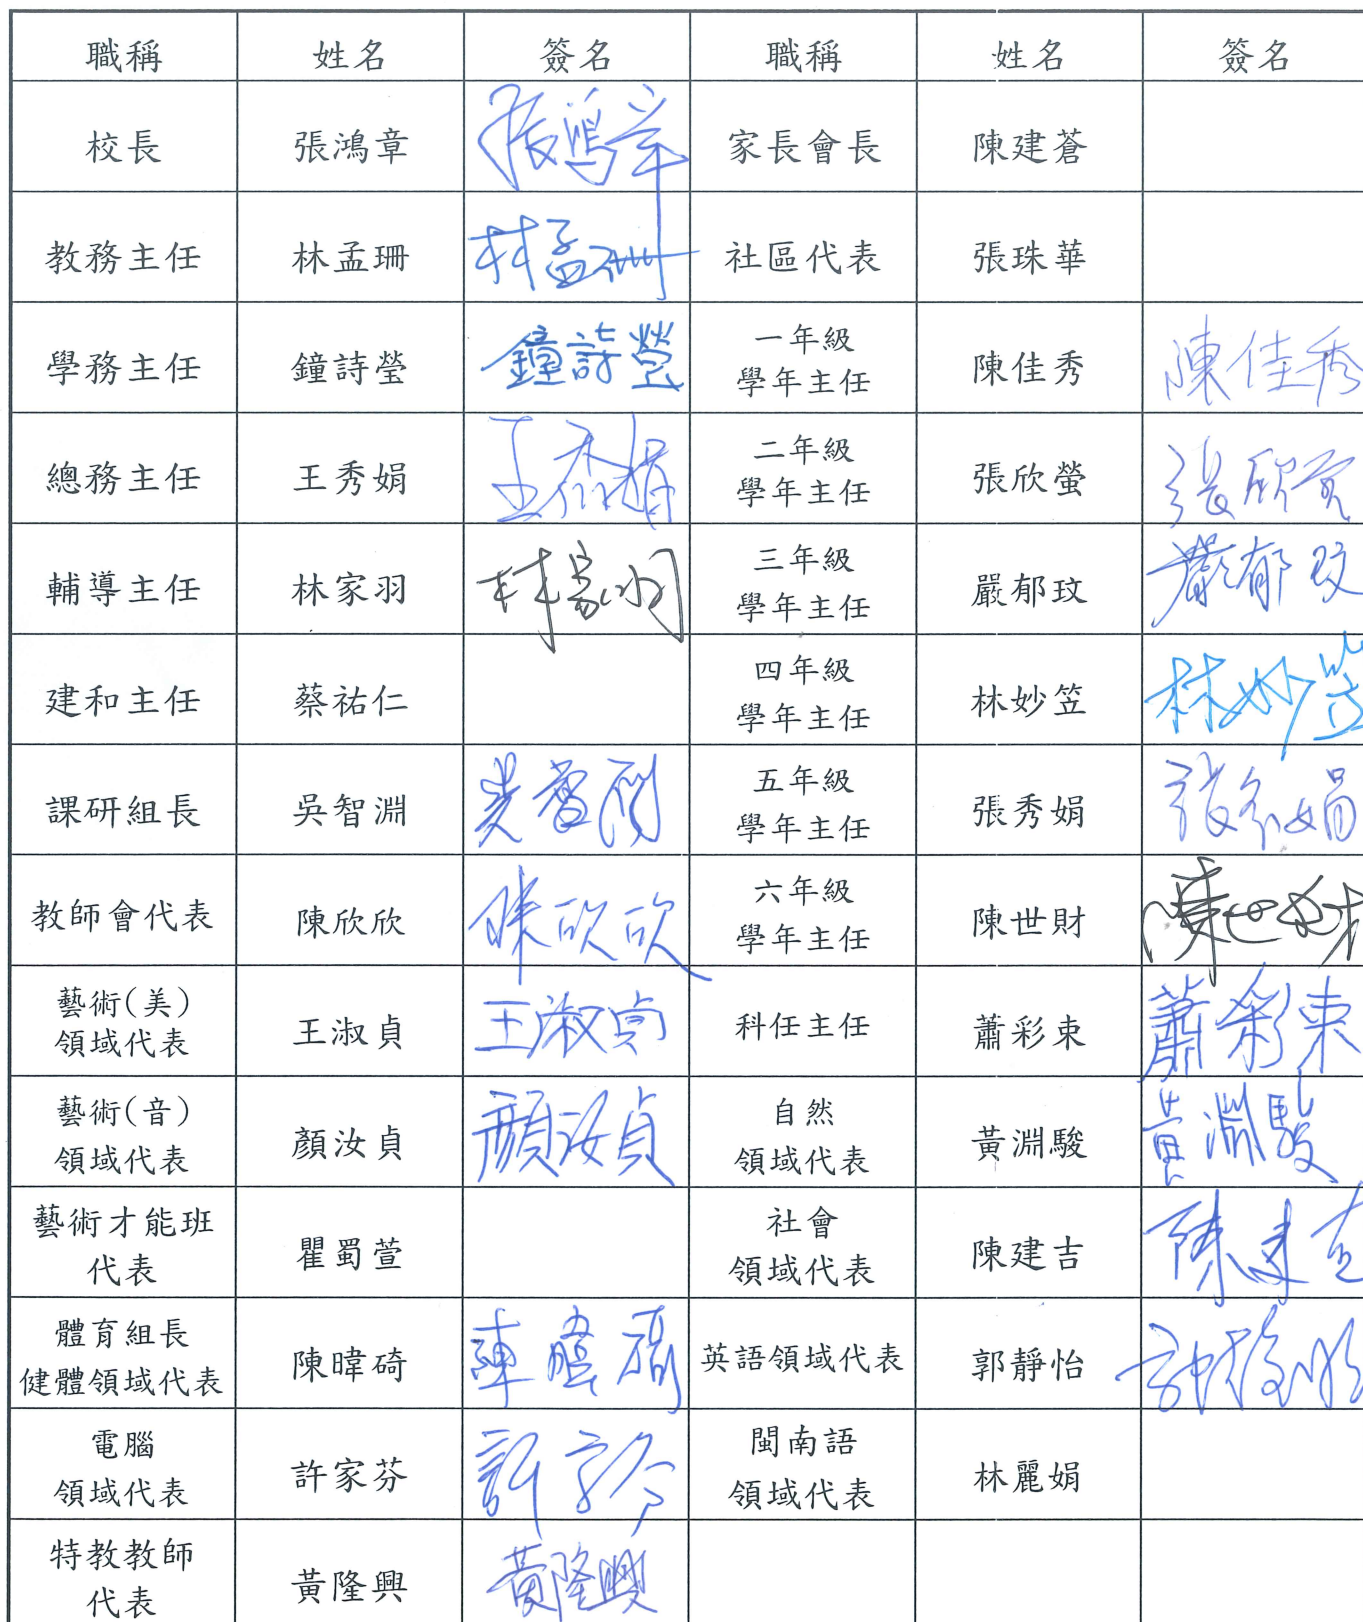 職稱 姓名 簽名 職稱 姓名 簽名
校長 張鴻章 張鴻章 家長會長 陳建蒼
教務主任 林孟珊 林孟珊 社區代表 張珠華
學務主任 鐘詩瑩 鐘詩瑩 一年級 學年主任 陳佳秀 陳佳秀
總務主任 王秀娟 王秀娟 二年級 學年主任 張欣螢 張欣螢
輔導主任 林家羽 林家羽 三年級 學年主任 嚴郁玟 嚴郁玟
建和主任 蔡祐仁 四年級 學年主任 林妙笠 林妙笠
課研組長 吳智淵 吳智淵 五年級 學年主任 張秀娟 張秀娟
教師會代表 陳欣欣 陳欣欣 六年級 學年主任 陳世財 陳世財
藝術(美) 領域代表 王淑貞 王淑貞 科任主任 蕭彩束 蕭彩束
藝術(音) 領域代表 顏汝貞 顏汝貞 自然 領域代表 黃淵駿 黃淵駿
藝術才能班 代表 瞿蜀萱 社會 領域代表 陳建吉 陳建吉
體育組長 健體領域代表 陳暐碕 陳暐碕 英語領域代表 郭靜怡
電腦 領域代表 許家芬 許家芬 閩南語 領域代表 林麗娟
特教教師 代表 黃隆興 黃隆興